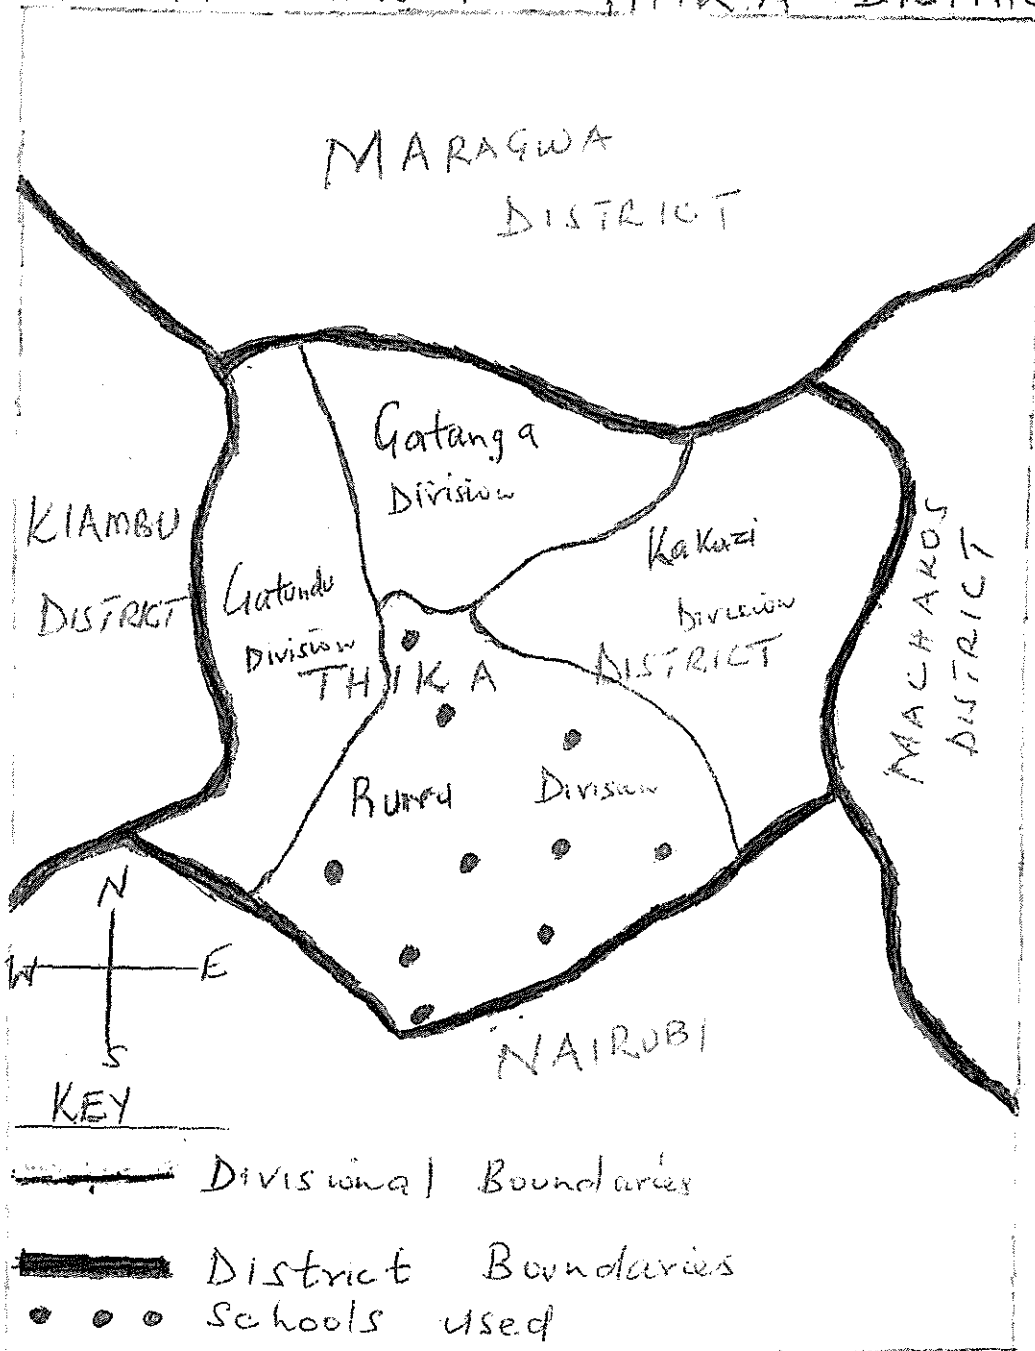 THIKA DISTRIC
MARAGWA
DISTRICT
Gatanga
Division
KIAMBU
DISTRICT
Gatundu
Division
Kakuzi
Division
THIKA DISTRICT
MACHAKOS
DISTRICT
Ruiru Division
N
W E
S
NAIROBI
KEY
Divisional Boundaries
District Boundaries
Schools used